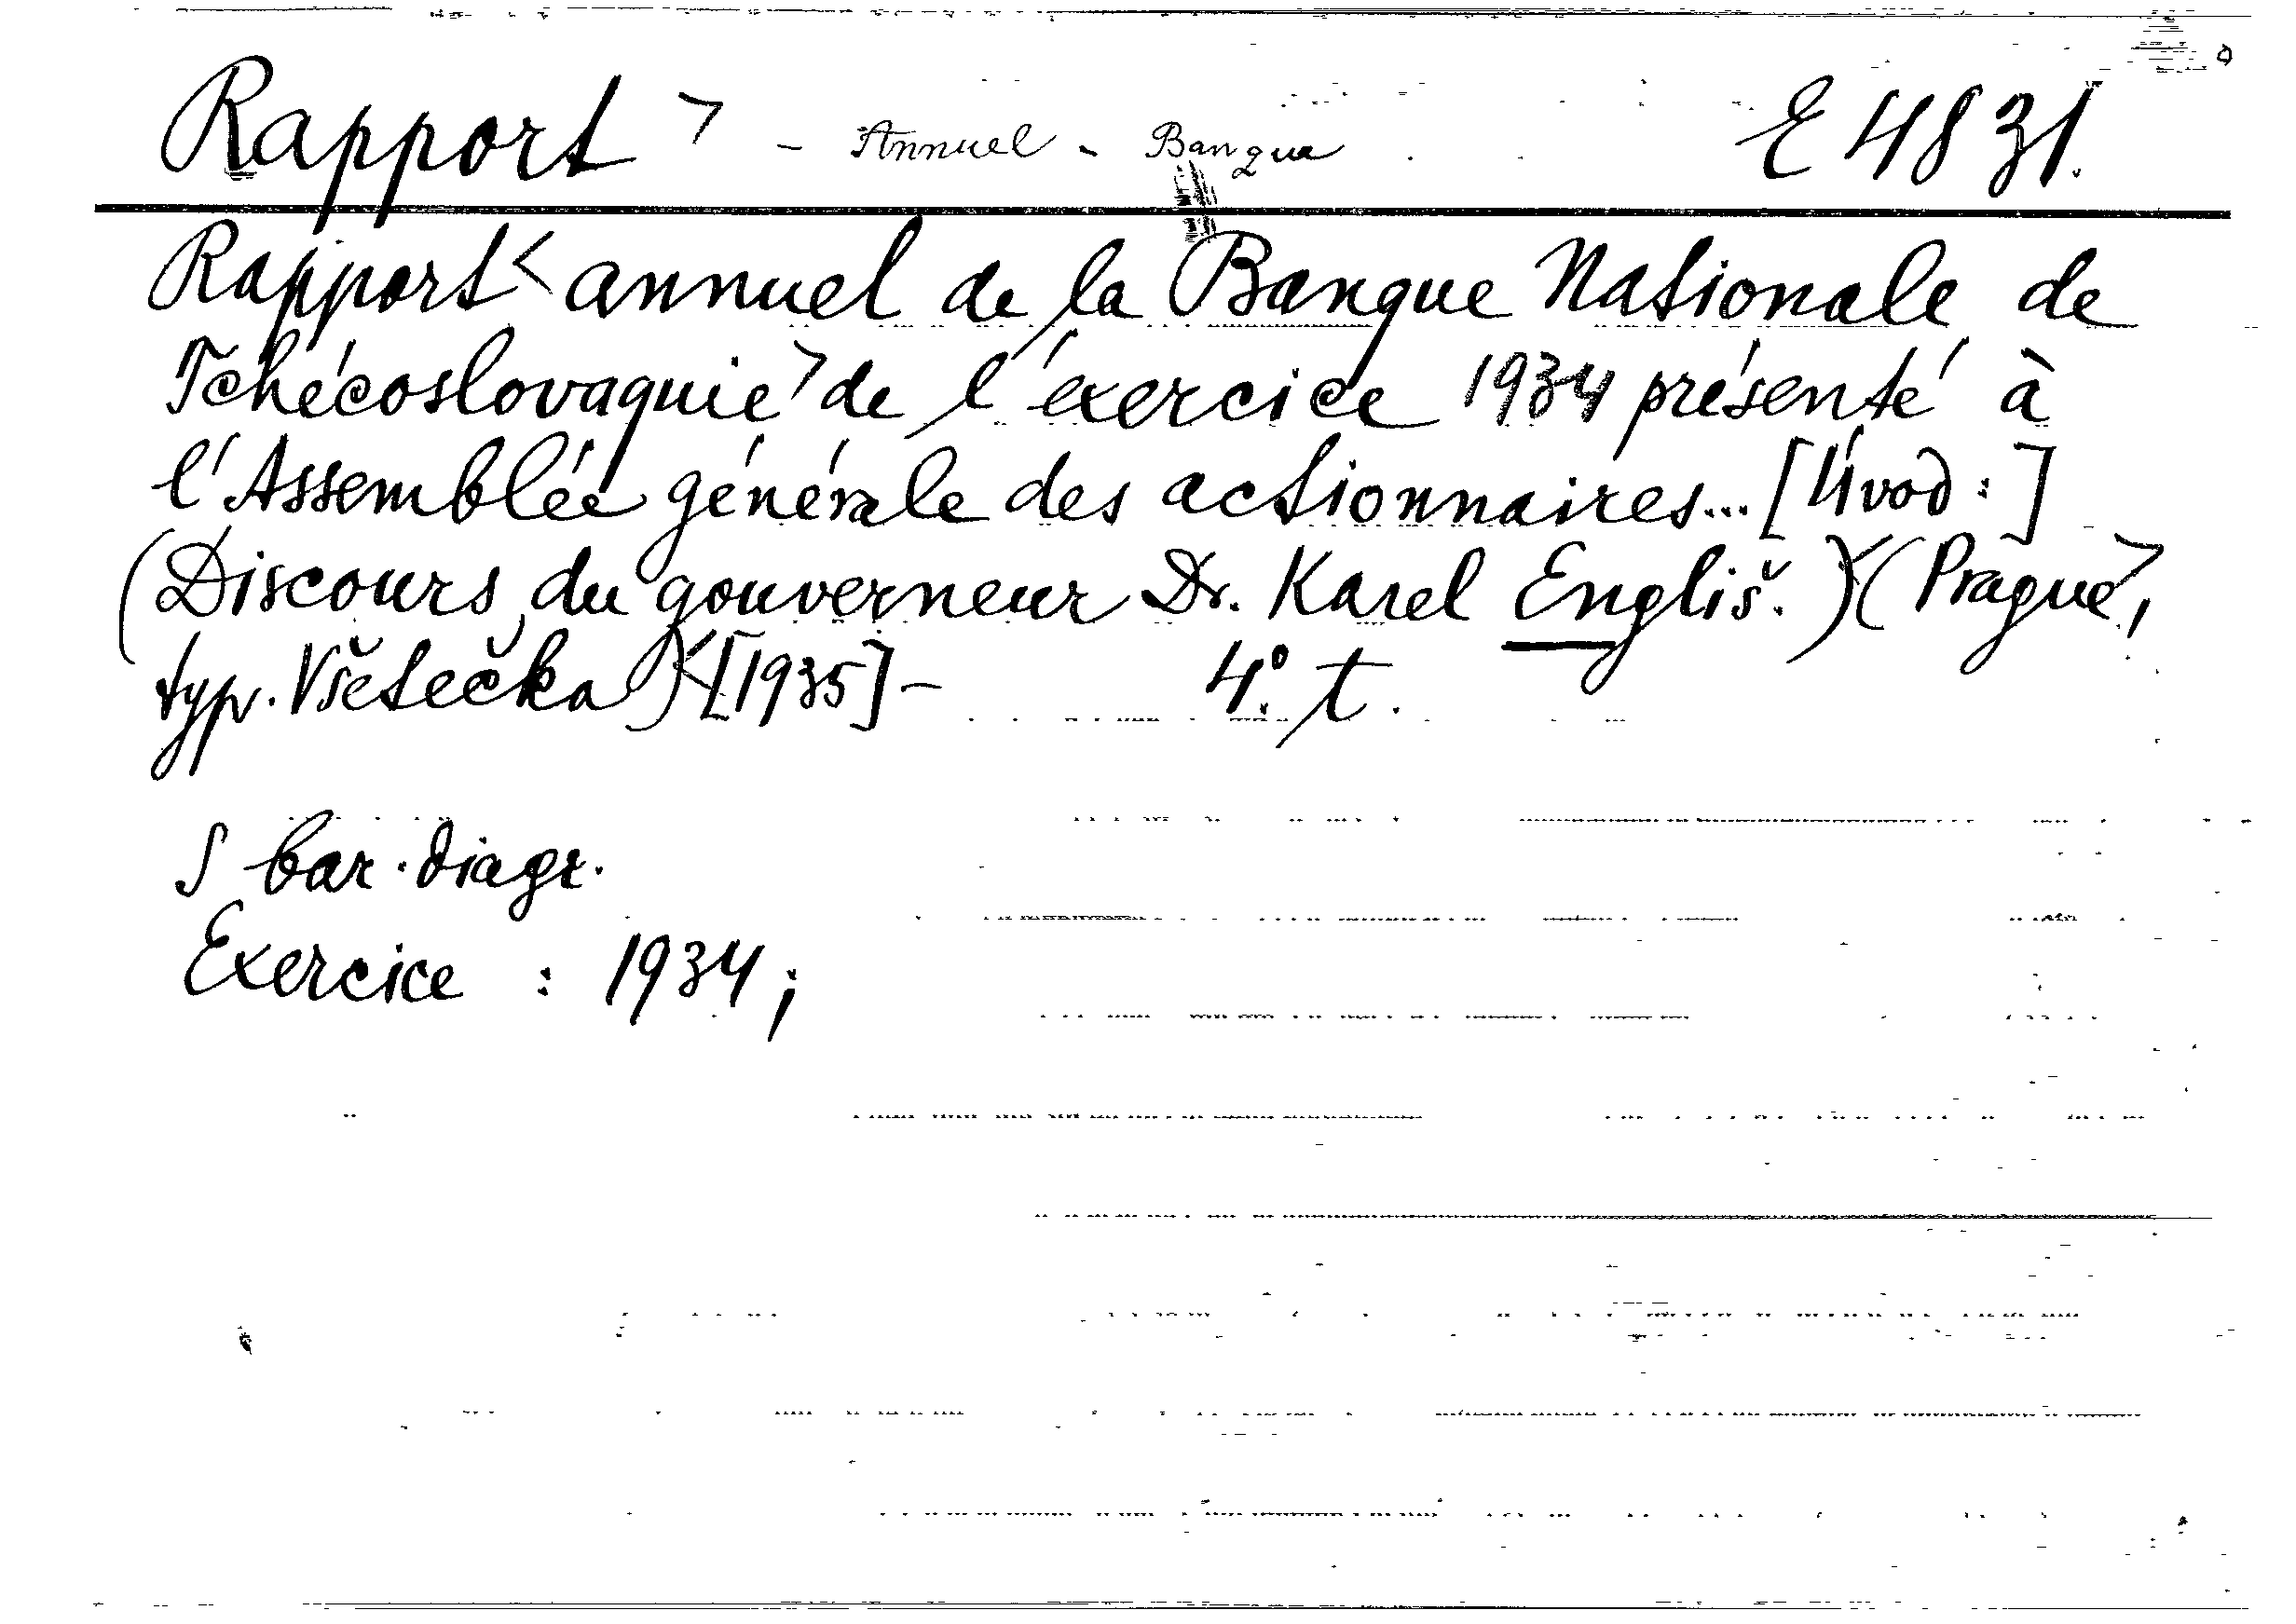 Rapport > - Annuel - Banque E 4831.
Rapport < annuel de la Banque Nationale de
Tchécoslovaquie > de l'exercice 1934 présenté à
l'Assemblée générale des actionnaires... [Úvod:]
(Discours du gouverneur Dr. Karel Engliš.) < (Prague >,
typ. Všetečka) < [1935] - 4° t.
S bar. diagr.
Exercice : 1934;